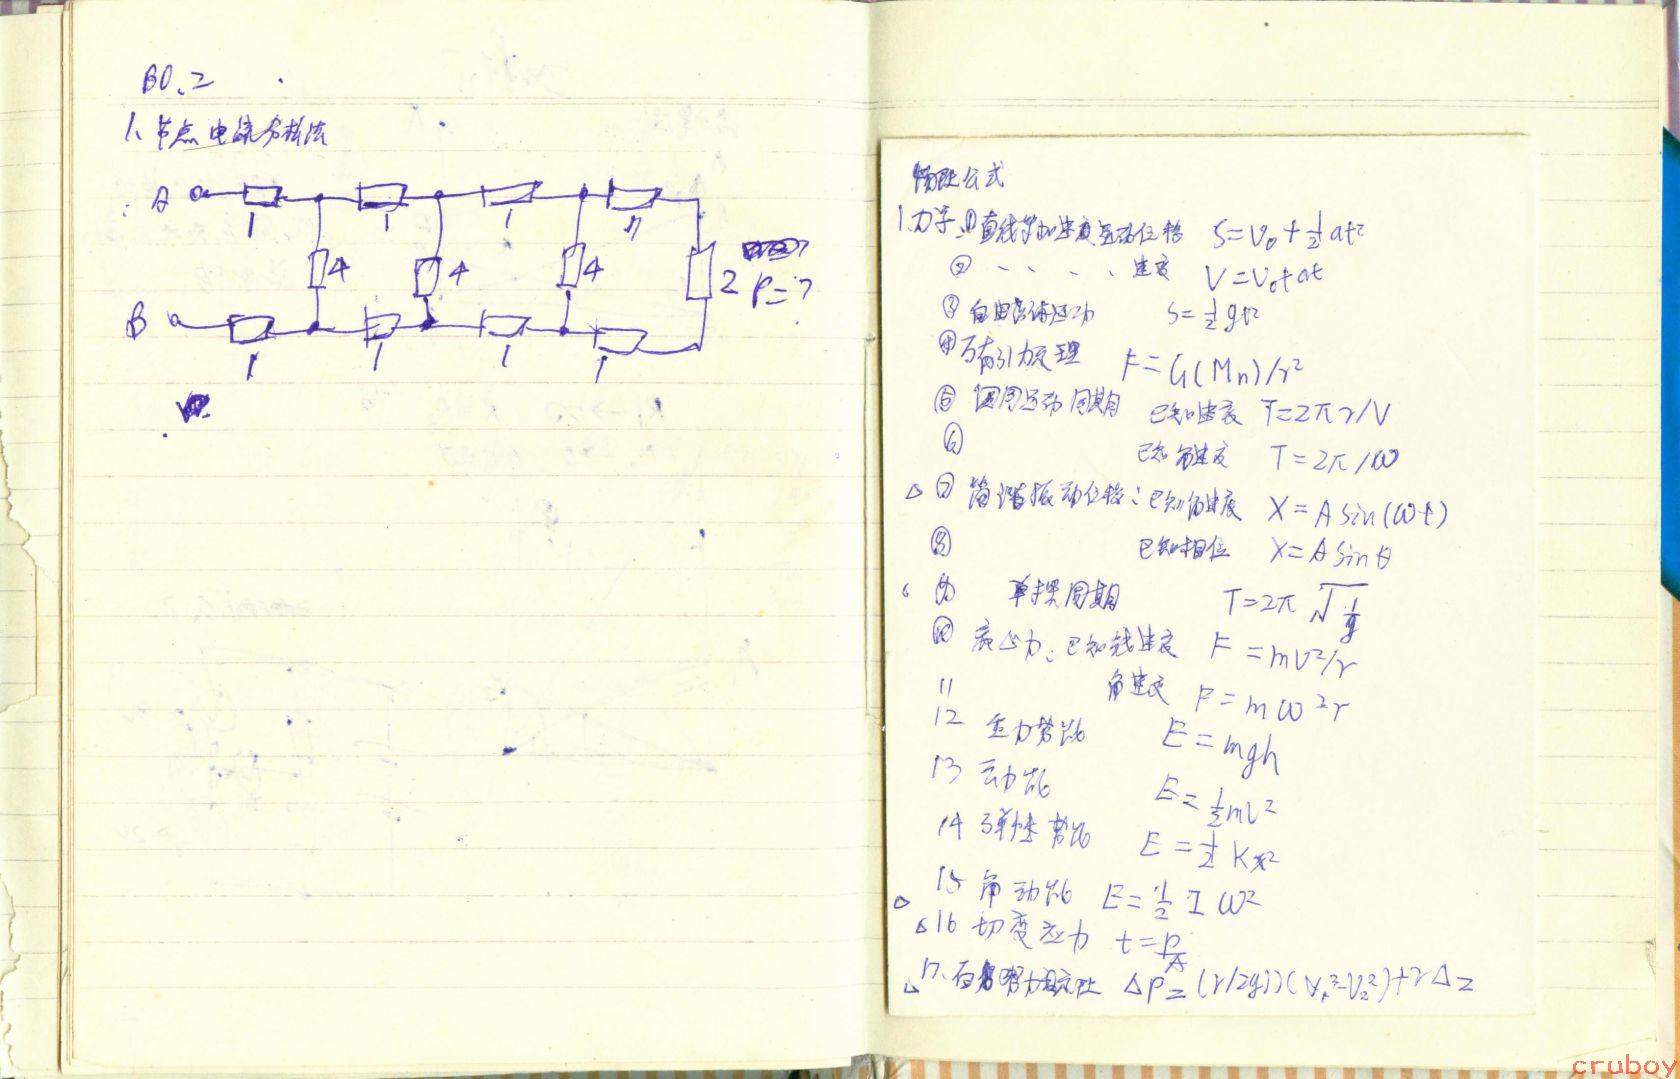 BO.2
1、节点电流分析法
A 1 1 1
4 4 4 2 P=?
B 1 1 1 1
物理公式
1.力学:①直线等加速度运动位移 S=V₀+½at²
② 、、、、速度 V=V₀+at
③自由落体运动 S=½gt²
④万有引力定理 F=G(Mn)/r²
⑤圆周运动周期 已知速度 T=2πr/V
⑥ 已知角速度 T=2π/ω
△⑦简谐振动位移:已知角速度 X=Asin(ωt)
⑧ 已知相位 X=Asinθ
⑨ 单摆周期 T=2π
⑩ 心力:已知线速度 F=mv²/r
11 角速度 F=mω²r
12 重力势能 E=mgh
13 动能 E=½mv²
14 弹性势能 E=½Kx²
△15 角动能 E=½Iω²
△16 切变应力 t=P/A
△17. ΔP=(r/2g)(V₁²-V₂²)+rΔz
cruboy